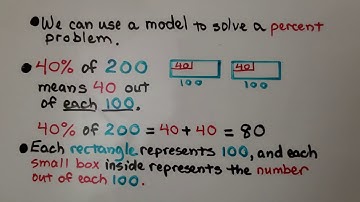 •We can use a model to solve a percent
problem.
•40% of 200
40 40
100 100
means 40 out
of each 100.
40% of 200 = 40 + 40 = 80
•Each rectangle represents 100, and each
small box inside represents the number
out of each 100.